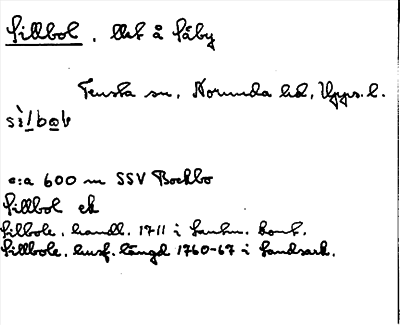 Sillbol, llht å Såby
Tensta sn, Norunda hd, Upps. l.
c:a 600 m SSV Backbo
Sillbol ek
Sillbole. handl. 1711 i lantm. kont.
Sillbole. husf. längd 1760-67 i landsark.